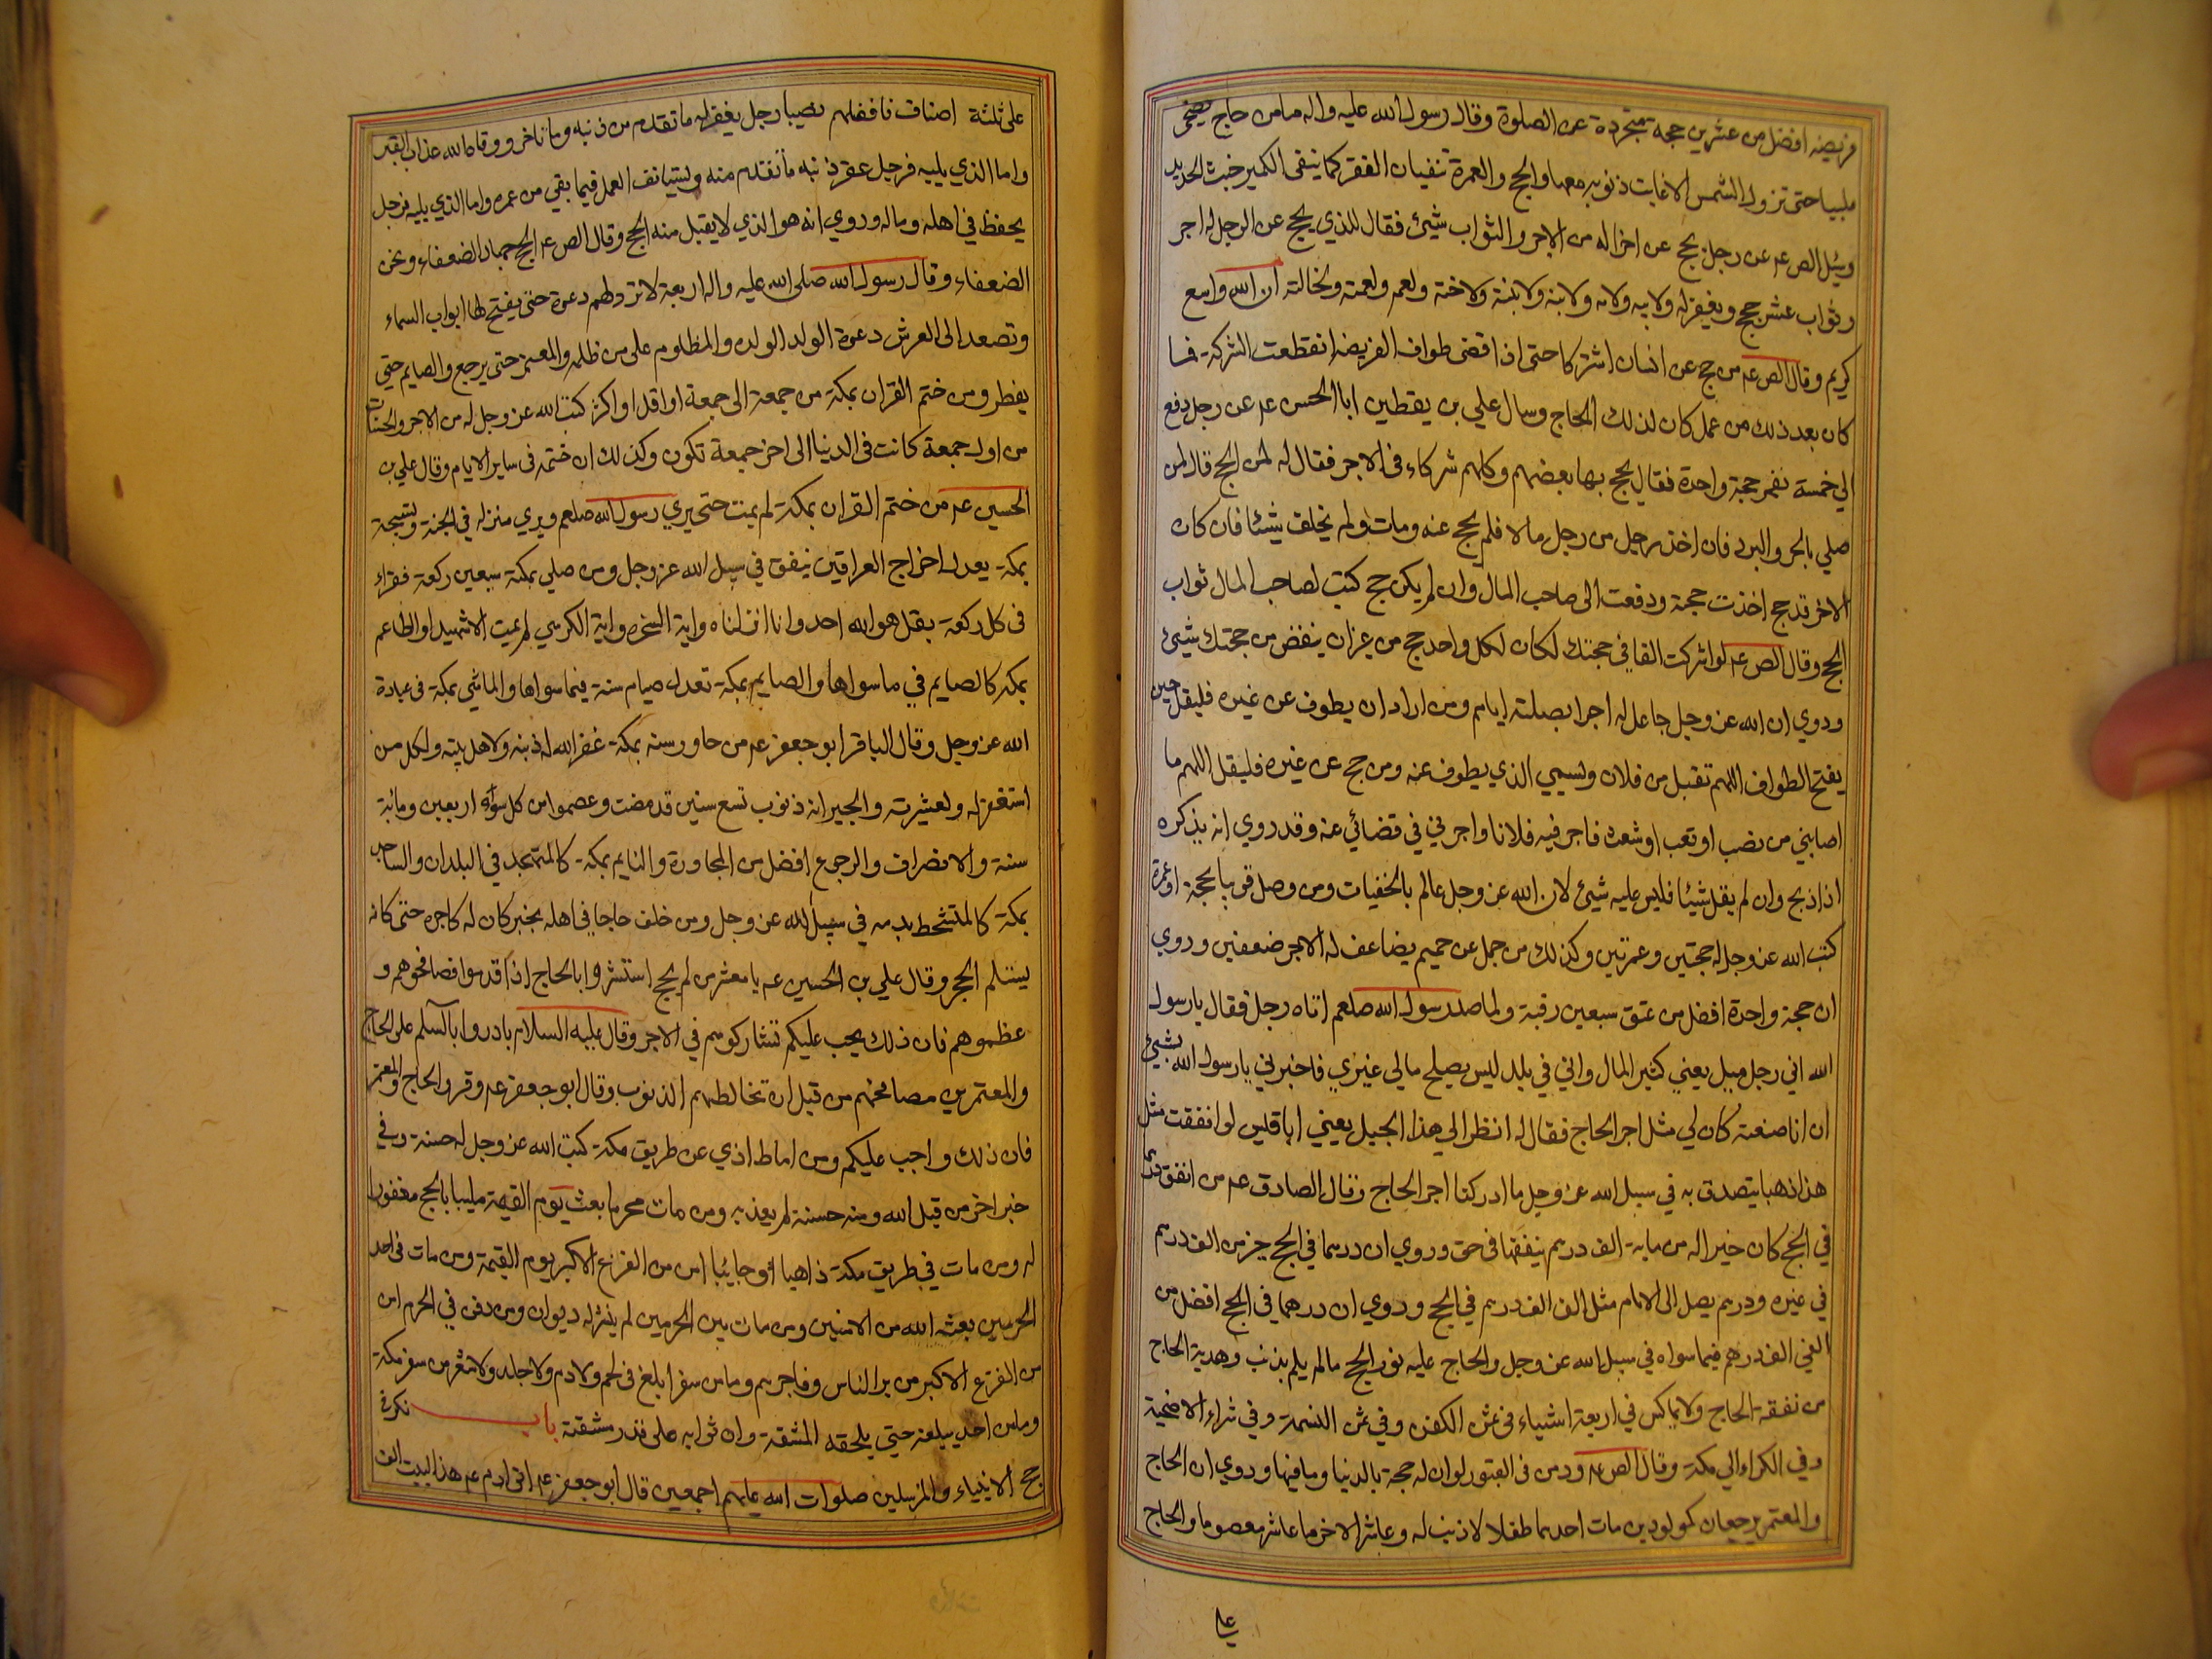 فريضه افضل من عشرين حجه متجردة عن الصلوة وقال رسول الله عليه واله مامن حاج يضحى
ملبيا حتى تزول الشمس الا غابت ذنوبه معها والحج والعمرة تنفيان الفقر كما ينفى الكير خبث الحديد
وسئل الص عه عن رجل يحج عن اخر اله من الاجر والثواب شيئ فقال للذي يحج عن الرجل له اجر
وثواب عشر حجج ويغفر له ولابيه ولامه ولابنه ولابنته ولاخته ولعمه ولعمته ولخالته ان الله واسع
كريم وقال الص عه من حج عن انسان اشتركا حتى اذا قضى طواف الفريضه انقطعت الشركة فما
كان بعد ذلك من عمل كان لذلك الحاج وسال علي بن يقطين ابا الحسن عه عن رجل دفع
الى خمسة نفر حجة واحدة فقال يحج بها بعضهم وكلهم شركاء فى الاجر فقال له لمن الحج قال لمن
صلي بالحر والبرد فان اخذ رجل من رجل مالا فلم يحج عنه ومات ولم يخلف شيئا فان كان
الاخر قد حج اخذت حجة ودفعت الى صاحب المال وان لم يكن حج كتب لصاحب المال ثواب
الحج وقال الص عه لو اشركت الفا فى حجتك لكان لكل واحد حج من غير ان ينقض من حجتك شيئ
وروي ان الله عز وجل جاعل له اجرا بصلته اياهم ومن اراد ان يطوف عن غيره فليقل حين
يفتح الطواف اللهم تقبل من فلان ويسمي الذي يطوف عنه ومن حج عن غيره فليقل اللهم ما
اصابني من نصب او تعب او شعث فاجر فيه فلانا واجرني في قضائي عنه وقد روي انه يذكره
اذا ذبح وان لم يقل شيئا فليس عليه شيئ لان الله عز وجل عالم بالخفيات ومن وصل قريبا بحجة او عمرة
كتب الله عز وجل له حجتين وعمرتين وكذلك من حمل عن حميم يضاعف له الاجر ضعفين وروي
ان حجة واحدة افضل من عتق سبعين رقبة ولما صدر رسول الله صلعم اتاه رجل فقال يا رسول
الله اني رجل ميل يعني كثير المال واني في بلد ليس يصلح مالى غيري فاخبرني يا رسول الله بشيئ
ان انا صنعته كان لي مثل اجر الحاج فقال له انظر الى هذا الجبل يعني ابا قليس لو انفقت مثل
هذا ذهبا يتصدق به في سبيل الله عز وجل ما ادركتا اجر الحاج وقال الصادق عه من انفق درهما
في الحج كان خيرا له من مايه الف درهم ينفقها فى حق وروي ان درهما في الحج خير من الف درهم
في غيره ودرهم يصل الى الامام مثل الف الف درهم في الحج وروي ان درهما في الحج افضل من
الفي الف درهم فيما سواه في سبيل الله عز وجل والحاج عليه نور الحج مالم يلم بذنب وهدية الحاج
من نفقة الحاج ولا يماكس في اربعة اشياء فى ثمن الكفن وفى ثمن النسمة وفي شراء الاضحية
وفي الكراء الى مكة وقال الص عه ودمن فى القبور لو ان له حجة بالدنيا وما فيها وروي ان الحاج
والمعتمر يرجعان كمولودين مات احدهما طفلا لا ذنب له وعاش الاخر ما عاش معصوما والحاج
على
على ثلثة اصناف فافضلهم نصيبا رجل يغفر له ما تقدم من ذنبه وما تاخر ووقاه الله عذاب القبر
واما الذي يليه فرجل غفر ذنبه ما تقدم منه ويستيانف العمل فيما بقي من عمره واما الذي يليه فرجل
يحفظ في اهله وماله وروي انه هو الذي لا يقبل منه الحج وقال الص عه الحج جهاد الضعفاء ونحن
الضعفاء وقال رسول الله صلى الله عليه واله اربعة لا ترد لهم دعوة حتى يفتح لها ابواب السماء
وتصعد الى العرش دعوة الوالد لولده والمظلوم على من ظلمه والمعتمر حتى يرجع والصايم حتي
يفطر ومن ختم القران بمكة من جمعة الى جمعة او اقل او اكثر كتب الله عز وجل له من الاجر والحسنات
من اول جمعة كانت فى الدنيا الى اخر جمعة تكون وكذلك ان ختمه فى ساير الايام وقال علي بن
الحسين عه من ختم القران بمكة لم يمت حتى يري رسول الله صلعم ويري منزله في الجنة وتسبيحة
بمكة يعدل اخراج العراقين ينفق في سبيل الله عز وجل ومن صلى بمكة سبعين ركعة فقراء
فى كل ركعة بقل هو الله احد وانا انزلناه واية السخره واية الكرسي لم يمت الا شهيدا والطاعم
بمكة كالصايم في ما سواها والصايم بمكة تعدل صيام سنة فيما سواها والماشي بمكة فى عبادة
الله عز وجل وقال الباقر ابو جعفر عه من جاور سنه بمكة غفر الله له ذنبه ولاهل بيته ولكل من
استغفر له ولعشيرته والجيرانه ذنوب تسع سنين قد مضت وعصموا من كل سوء اربعين ومائة
سنة والانصراف والرجوع افضل من المجاورة والنايم بمكة كالمتهجد في البلدان والساجد
بمكة كالمتشحط بدمه في سبيل الله عز وجل ومن خلف حاجا في اهله بخير كان له كاجره حتى كانه
يستلم الحجر وقال علي بن الحسين عه يا معشر من لم يحج استشروا بالحاج اذا قدموا فصافحوهم و
عظموهم فان ذلك يجب عليكم تشاركوهم في الاجر وقال عليه السلام بادروا بالسلم على الحاج
والمعتمرين مصافحتهم من قبل ان تخالطهم الذنوب وقال ابو جعفر عه وقروا الحاج والمعتمر
فان ذلك واجب عليكم ومن اماط اذي عن طريق مكة كتب الله عز وجل له حسنة وفي
خبر اخر من قبل الله منه حسنة لم يعذبه ومن مات محرما بعث يوم القيمة ملبيا بالحج مغفورا
له ومن مات في طريق مكة ذاهبا او جايئا امن من الفزع الاكبر يوم القيمة ومن مات فى احد
الحرمين بعثه الله من الامنين ومن مات بين الحرمين لم ينشر له ديوان ومن دفن في الحرم امن
من الفزع الاكبر من بر الناس وفاجرهم وما من سفر ابلغ فى لحم ولا دم ولا جلد ولا شعر من سفر مكة
وما من احد يبلغه حتي يلحقه المشقة وان ثوابه على قدر مشقته باب نكرة
حج الانبياء والمرسلين صلوات الله عليهم اجمعين قال ابو جعفر عه اتى ادم عه هذا البيت الف